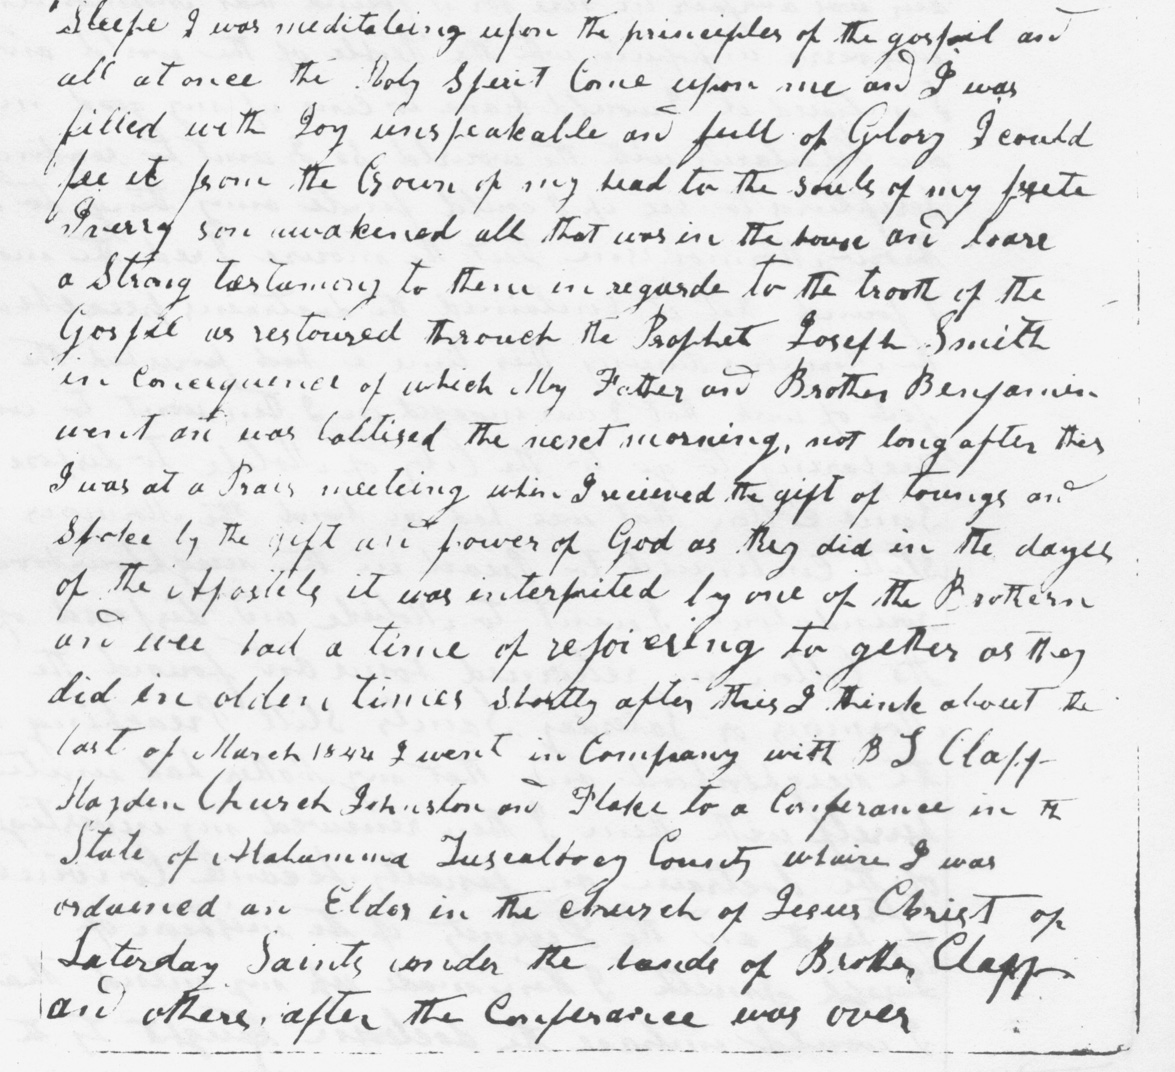 Sleepe I was meditateing upon the principles of the gospail and
all at once the Holy Spirit Come upon me and I was
filled with Joy unspeakable and full of Glory I could
fee it from the Crown of my head to the souls of my feete
I verry son awakened all that was in the house and boare
a Strong testamony to them in regarde to the trooth of the
Gospel as restoured through the Prophet Joseph Smith
in Concequence of which My Father and Brother Benjamin
went and was babtised the next morning, not long after this
I was at a Prair meeteing when I recieved the gift of toungs and
Spoke by the gift and power of God as they did in the dayes
of the Apostels it was interpeited by one of the Brothern
and wee had a time of rejoiceing to gether as they
did in olden times Shortly after this I think about the
last of March 1844 I went in Company with B L Clapp
Hayden Church Johnston and Flake to a Conferance in the
State of Alabamma Tuscaloosey County whaire I was
ordained an Elder in the church of Jesus Christ of
Laterday Saints under the hands of Brother Clapp
and others, after the Conferance was over